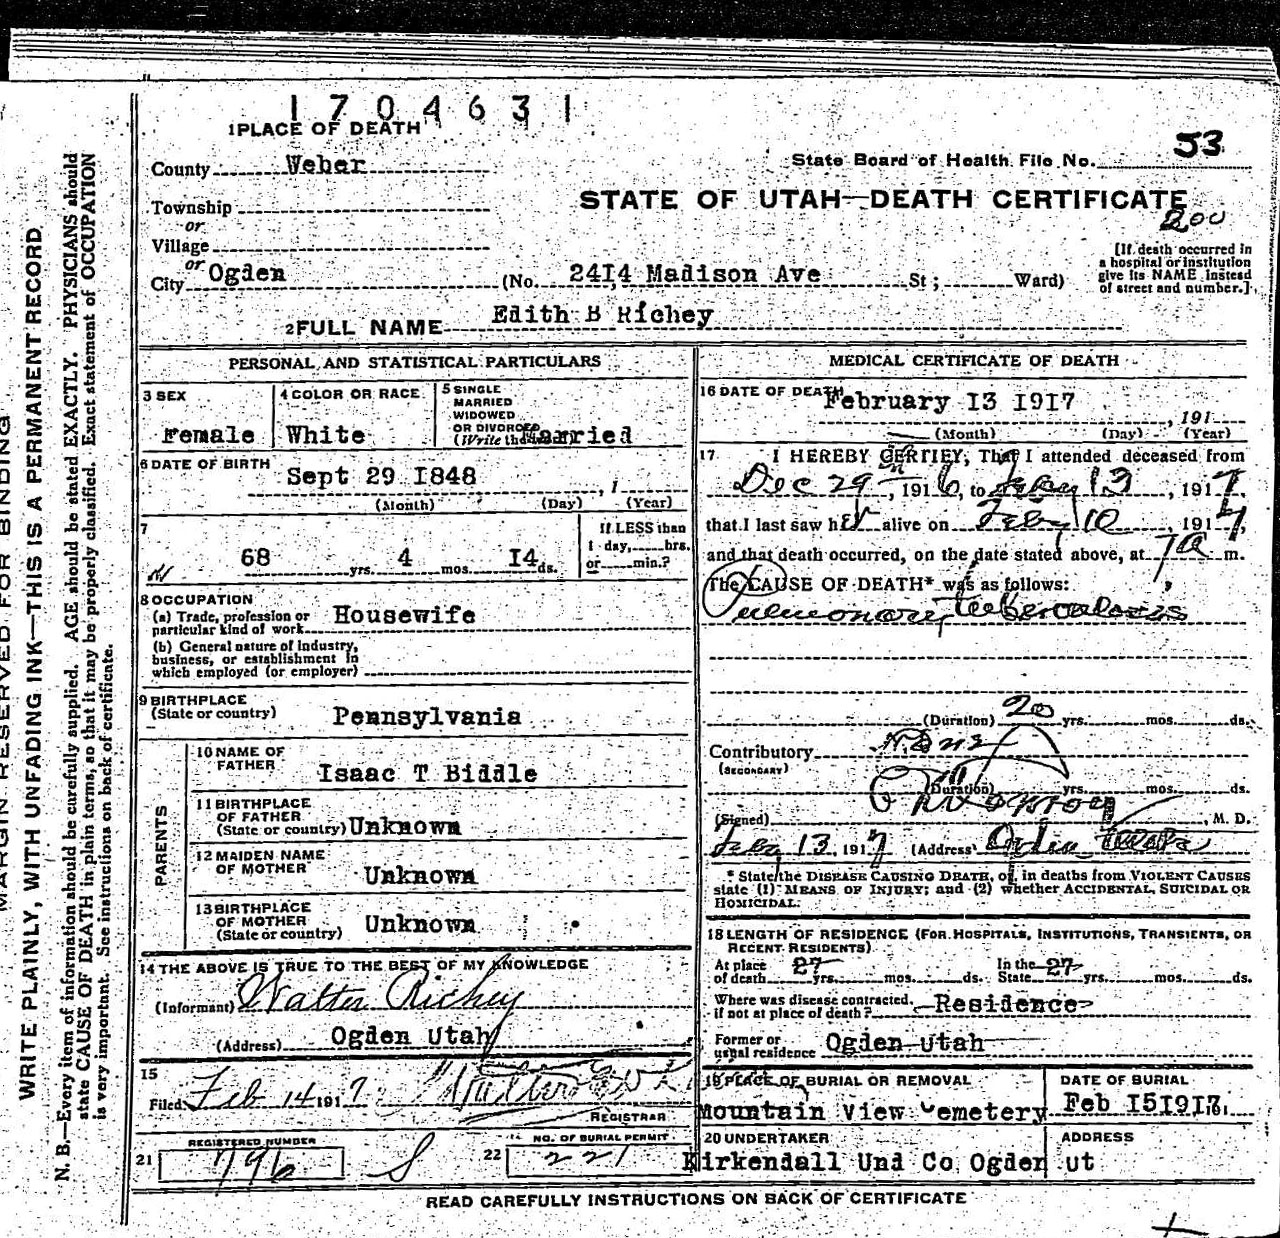 1704631
1 PLACE OF DEATH
County Weber
State Board of Health File No. 53
STATE OF UTAH—DEATH CERTIFICATE
200
Township
or
Village
or
City Ogden (No. 24I4 Madison Ave St; Ward)
[If death occurred in
a hospital or institution
give its NAME instead
of street and number.]
2 FULL NAME Edith B Richey
PERSONAL AND STATISTICAL PARTICULARS
3 SEX
Female
4 COLOR OR RACE
White
5 SINGLE
MARRIED
WIDOWED
OR DIVORCED
(Write the Married
6 DATE OF BIRTH
Sept 29 I848
(Month) (Day) (Year)
7
68 yrs. 4 mos. I4 ds.
If LESS than
1 day, hrs.
or min.?
8 OCCUPATION
(a) Trade, profession or
particular kind of work Housewife
(b) General nature of industry,
business, or establishment in
which employed (or employer)
9 BIRTHPLACE
(State or country) Pennsylvania
PARENTS
10 NAME OF
FATHER
Isaac T Biddle
11 BIRTHPLACE
OF FATHER
(State or country) Unknown
12 MAIDEN NAME
OF MOTHER
Unknown
13 BIRTHPLACE
OF MOTHER
(State or country) Unknown
14 THE ABOVE IS TRUE TO THE BEST OF MY KNOWLEDGE
(Informant) Walter Richey
(Address) Ogden Utah
15
Filed Feb 14 1917
REGISTRAR
REGISTERED NUMBER
21 796
NO. OF BURIAL PERMIT
22 221
MEDICAL CERTIFICATE OF DEATH
16 DATE OF DEATH
February I3 I9I7
, 191
(Month) (Day) (Year)
17 I HEREBY CERTIFY, That I attended deceased from
Dec 29, 1916, to Feby 13, 1917,
that I last saw her alive on Feby 10, 1917,
and that death occurred, on the date stated above, at 7a m.
The CAUSE OF DEATH* was as follows:
Pulmonary tuberculosis
(Duration) 20 yrs. mos. ds.
Contributory None
(SECONDARY)
(Duration) yrs. mos. ds.
(Signed) , M. D.
Feby 13, 1917 (Address) Ogden Utah
* State the DISEASE CAUSING DEATH, or, in deaths from VIOLENT CAUSES
state (1) MEANS OF INJURY; and (2) whether ACCIDENTAL, SUICIDAL OR
HOMICIDAL.
18 LENGTH OF RESIDENCE (FOR HOSPITALS, INSTITUTIONS, TRANSIENTS, OR
RECENT RESIDENTS)
At place
of death 27 yrs. mos. ds. In the
State 27 yrs. mos. ds.
Where was disease contracted,
if not at place of death? Residence
Former or
usual residence Ogden utah
19 PLACE OF BURIAL OR REMOVAL
Mountain View Cemetery
DATE OF BURIAL
Feb I5I9I7
20 UNDERTAKER
Kirkendall Und Co Ogden ut
ADDRESS
READ CAREFULLY INSTRUCTIONS ON BACK OF CERTIFICATE
MARGIN RESERVED FOR BINDING
WRITE PLAINLY, WITH UNFADING INK—THIS IS A PERMANENT RECORD
N. B.—Every item of information should be carefully supplied. AGE should be stated EXACTLY. PHYSICIANS should
state CAUSE OF DEATH in plain terms, so that it may be properly classified. Exact statement of OCCUPATION
is very important. See instructions on back of certificate.